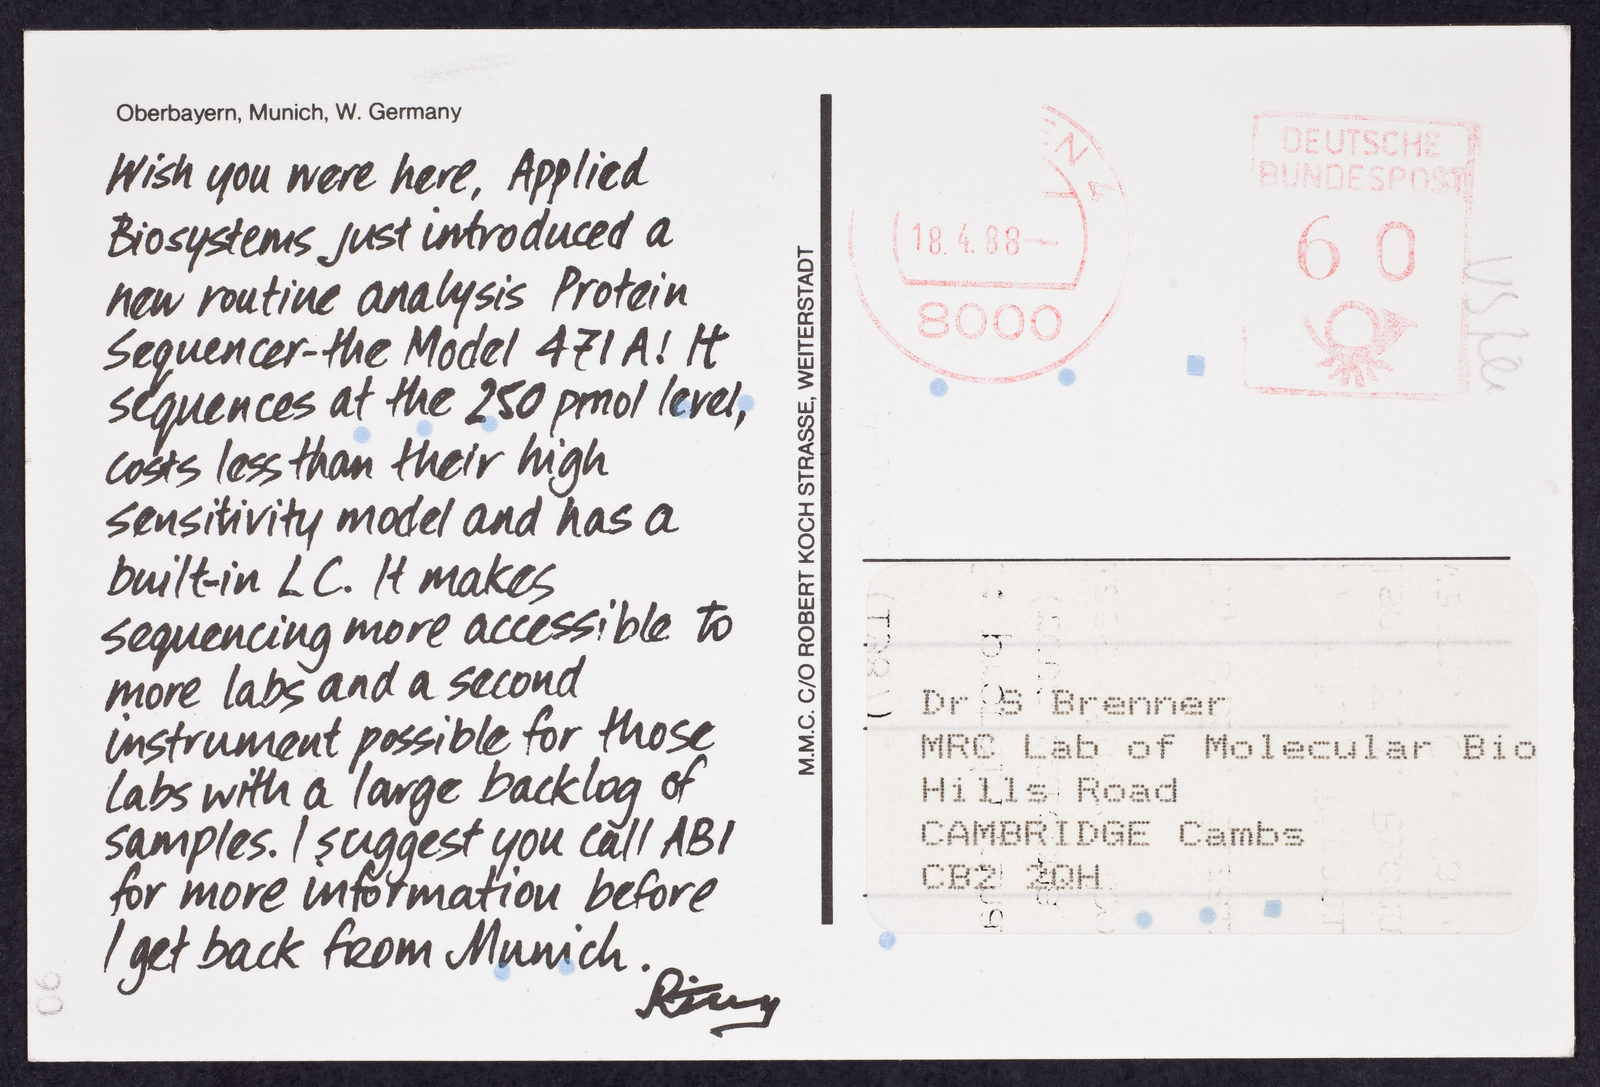 Oberbayern, Munich, W. Germany
Wish you were here, Applied
Biosystems just introduced a
new routine analysis Protein
Sequencer-the Model 471A! It
sequences at the 250 pmol level,
costs less than their high
sensitivity model and has a
built-in LC. It makes
sequencing more accessible to
more labs and a second
instrument possible for those
labs with a large backlog of
samples. I suggest you call ABI
for more information before
I get back from Munich.
M.M.C. C/O ROBERT KOCH STRASSE, WEITERSTADT
18.4.88
8000
DEUTSCHE
BUNDESPOST
60
Dr S Brenner
MRC Lab of Molecular Bio
Hills Road
CAMBRIDGE Cambs
CB2 2QH
90